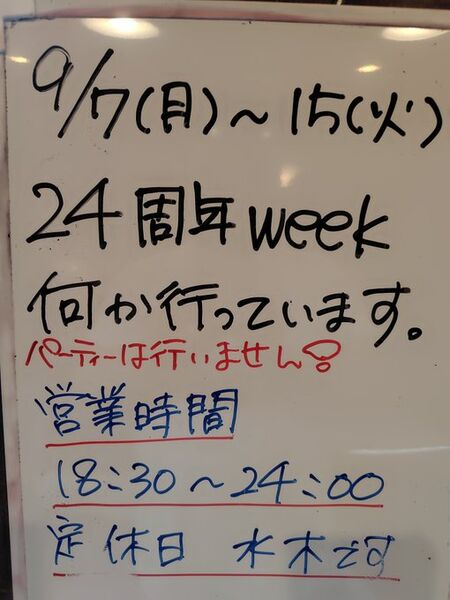 9/7(月)～15(火)
24周年week
何か行っています。
パーティーは行いません!
営業時間
18:30～24:00
定休日 水木です